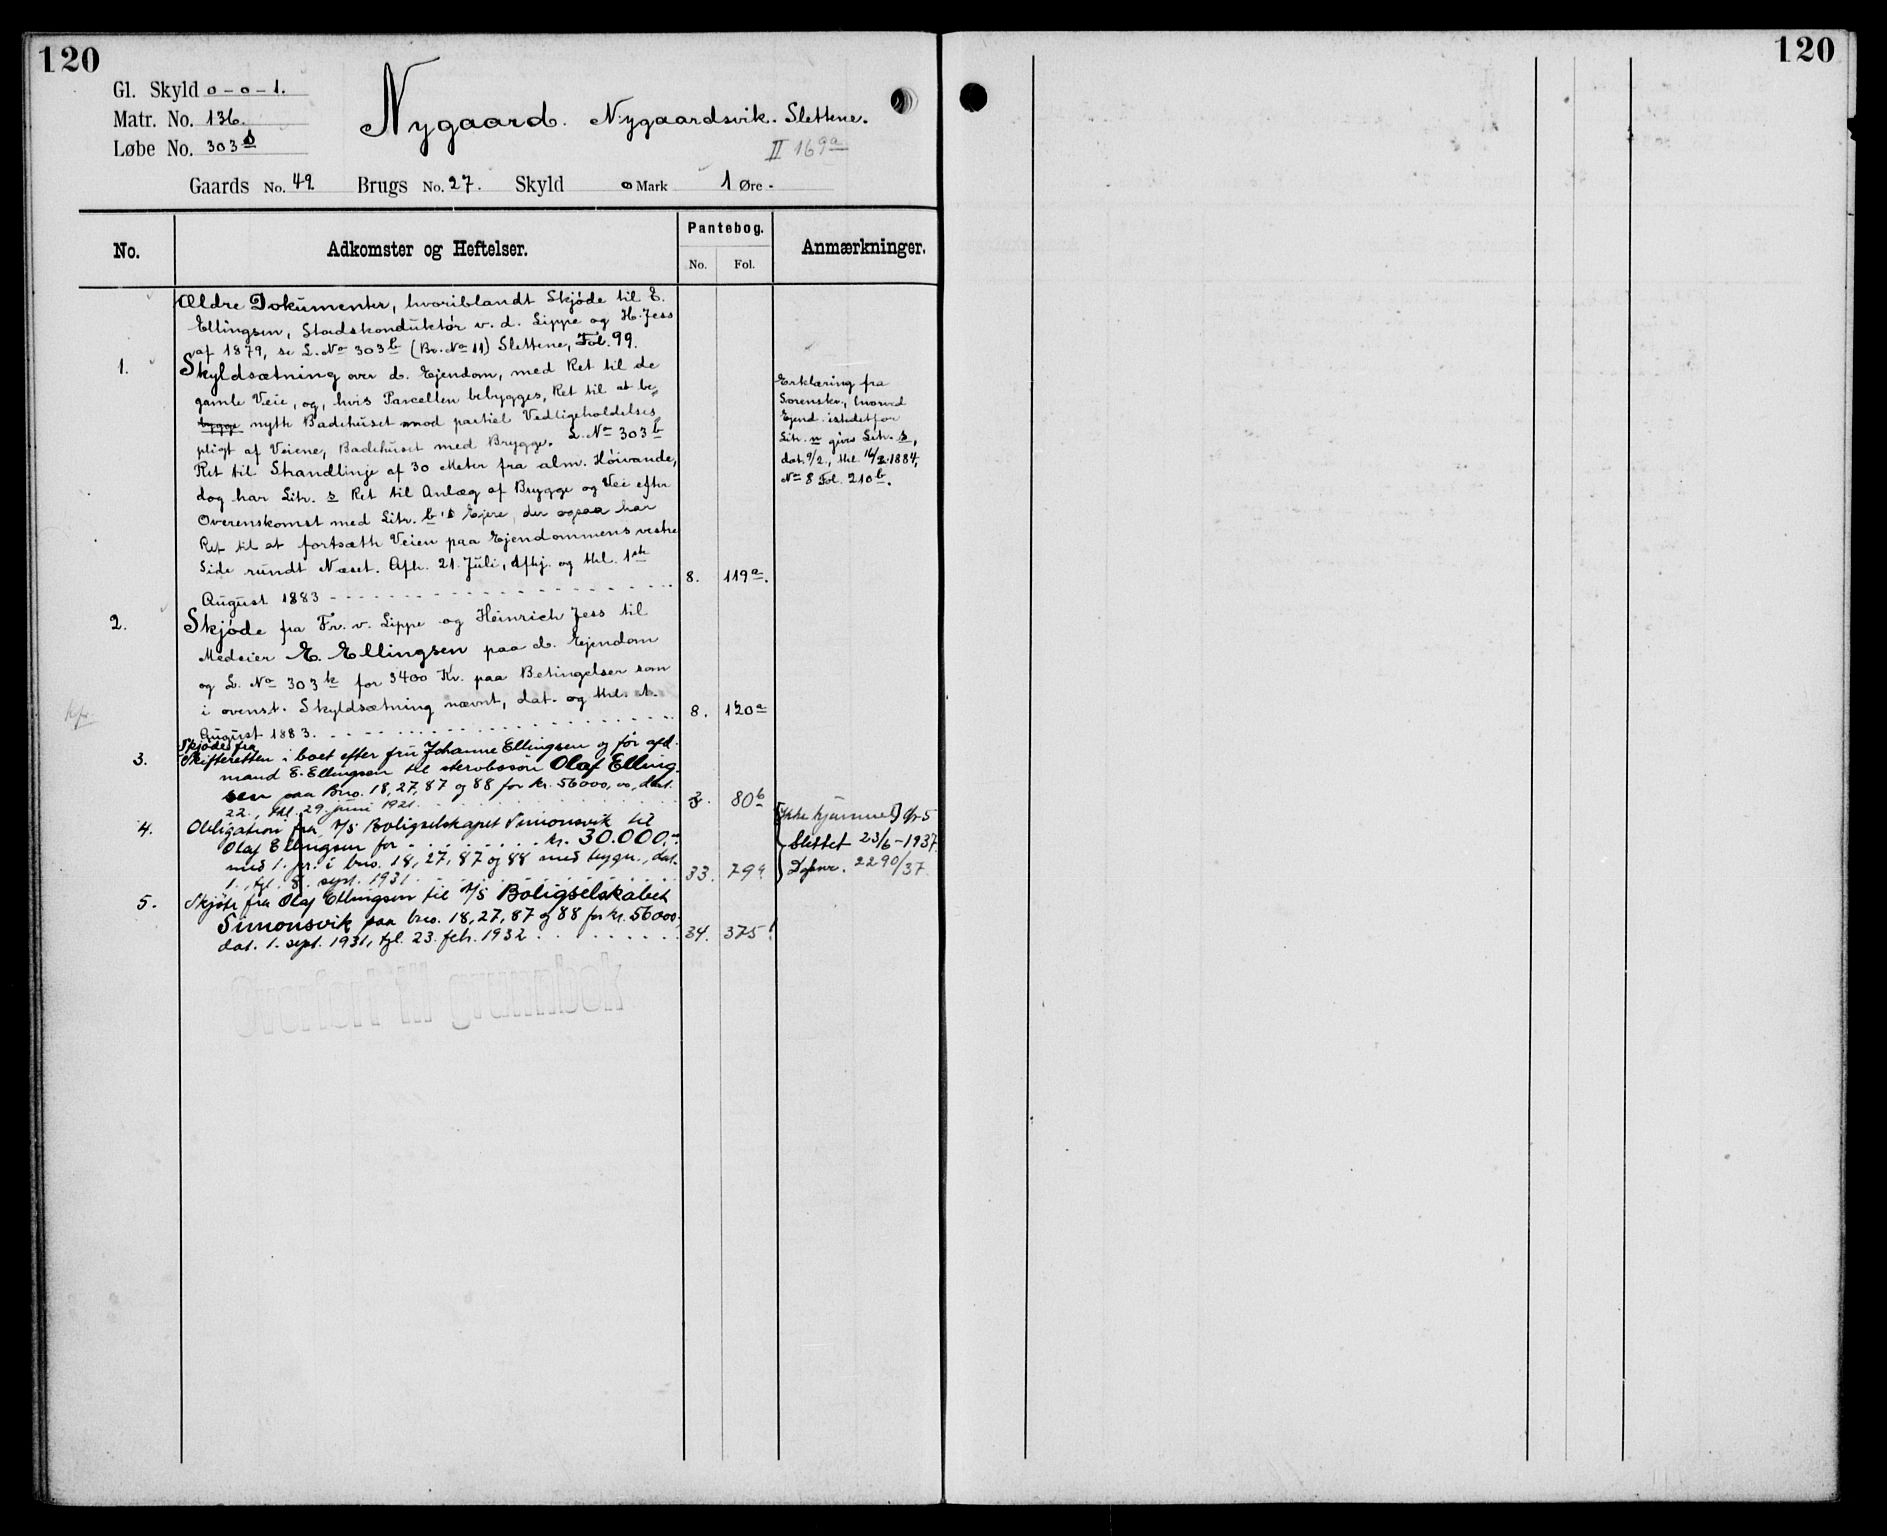 120
120
Gl. Skyld 0-0-1.
Matr. No. 136.
Løbe No. 303 s
Nygaard. Nygaardsvik. Slettene.
II 169a
Gaards No. 49 Brugs No. 27. Skyld 0 Mark 1 Øre.
No.
Adkomster og Heftelser.
Pantebog.
No.
Fol.
Anmærkninger.
Ældre Dokumenter, hvoriblandt Skjøde til E.
Ellingsen, Stadskonduktør v. d. Lippe og H. Jess
af 1879, se L. No 303 b (Br. No 11) Slettene, Fol. 99.
1. Skyldsætning over d. Ejendom, med Ret til de
gamle Veie, og, hvis Parcellen bebygges, Ret til at be-
bygge nytte Badehuset mod partiel Vedligeholdelses
pligt af Veiene, Badehuset med Brygge. L. No 303 b
Ret til Strandlinje af 30 Meter fra alm. Høivande,
dog har Litr. s Ret til Anlæg af Brygge og Vei efter
Overenskomst med Litr. b's Ejere, der ogsaa har
Ret til at fortsætte Veien paa Ejendommens vestre
Side rundt Næset. Afh. 21. Juli, afhj. og thl. 1ste
August 1883 - - - 8. 119a.
Erklæring fra
Sorenskr., hvorved
Ejend. istedetfor
Litr. n gives Litr. s,
dat. 9/2, thl. 16/2.1884,
No 8 Fol. 210b.
2. Skjøde fra Fr. v. Lippe og Heinrich Jess til
Medeier E. Ellingsen paa d. Ejendom
og L. No 303 k for 3400 Kr. paa Betingelser som
i ovenst. Skyldsætning nævnt, dat. og thl. 1.
August 1883. - - - 8. 120a
3. Skjøde fra
Skifteretten i boet efter fru Johanne Ellingsen og før afd.
mand E. Ellingsen til stervbosøn Olaf Elling-
sen paa Bno. 18, 27, 87 og 88 for kr. 56000,00, dat.
22., thl. 29. juni 1921. . . . 80b
4. Obligation fra A/S Boligselskapet Simonsvik til
Olaf Ellingsen for . . . kr. 30.000,-
med 1. pr. i bno. 18, 27, 87 og 88 med bygn., dat.
1., tgl. 8. sept. 1931 . . . 33. 79
[Ikke hjemmel]
Slettet 23/6-1937.
Dagbnr. 2290/37
5. Skjøte fra Olaf Ellingsen til A/S Boligselskabet
Simonsvik paa bno. 18, 27, 87 og 88 for kr. 56000,
dat. 1. sept. 1931, tgl. 23. feb. 1932 . . . 34. 375
Overført til grunnbok